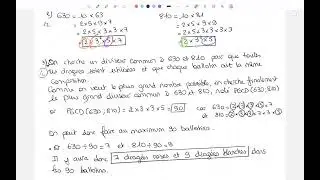 2) 630 = 10 × 63
810 = 10 × 81
= 2 × 5 × 9 × 7
= 2 × 5 × 9 × 9
= 2 × 5 × 3 × 3 × 7
= 2 × 5 × 3 × 3 × 3 × 3
= 2 × 3² × 5 × 7
3) On cherche un diviseur commun à 630 et 810 pour que toutes
les dragées soient utilisées et que chaque ballotin ait la même
composition.
Comme on veut le plus grand nombre possible, on cherche finalement
le plus grand diviseur commun à 630 et 810, noté PGCD(630; 810)
PGCD(630; 810) = 2 × 3 × 3 × 5 = 90 car
On peut donc faire au maximum 90 ballotins.
630 ÷ 90 = 7 et 810 ÷ 90 = 9
Il y aura donc 7 dragées roses et 9 dragées blanches dans
les 90 ballotins.